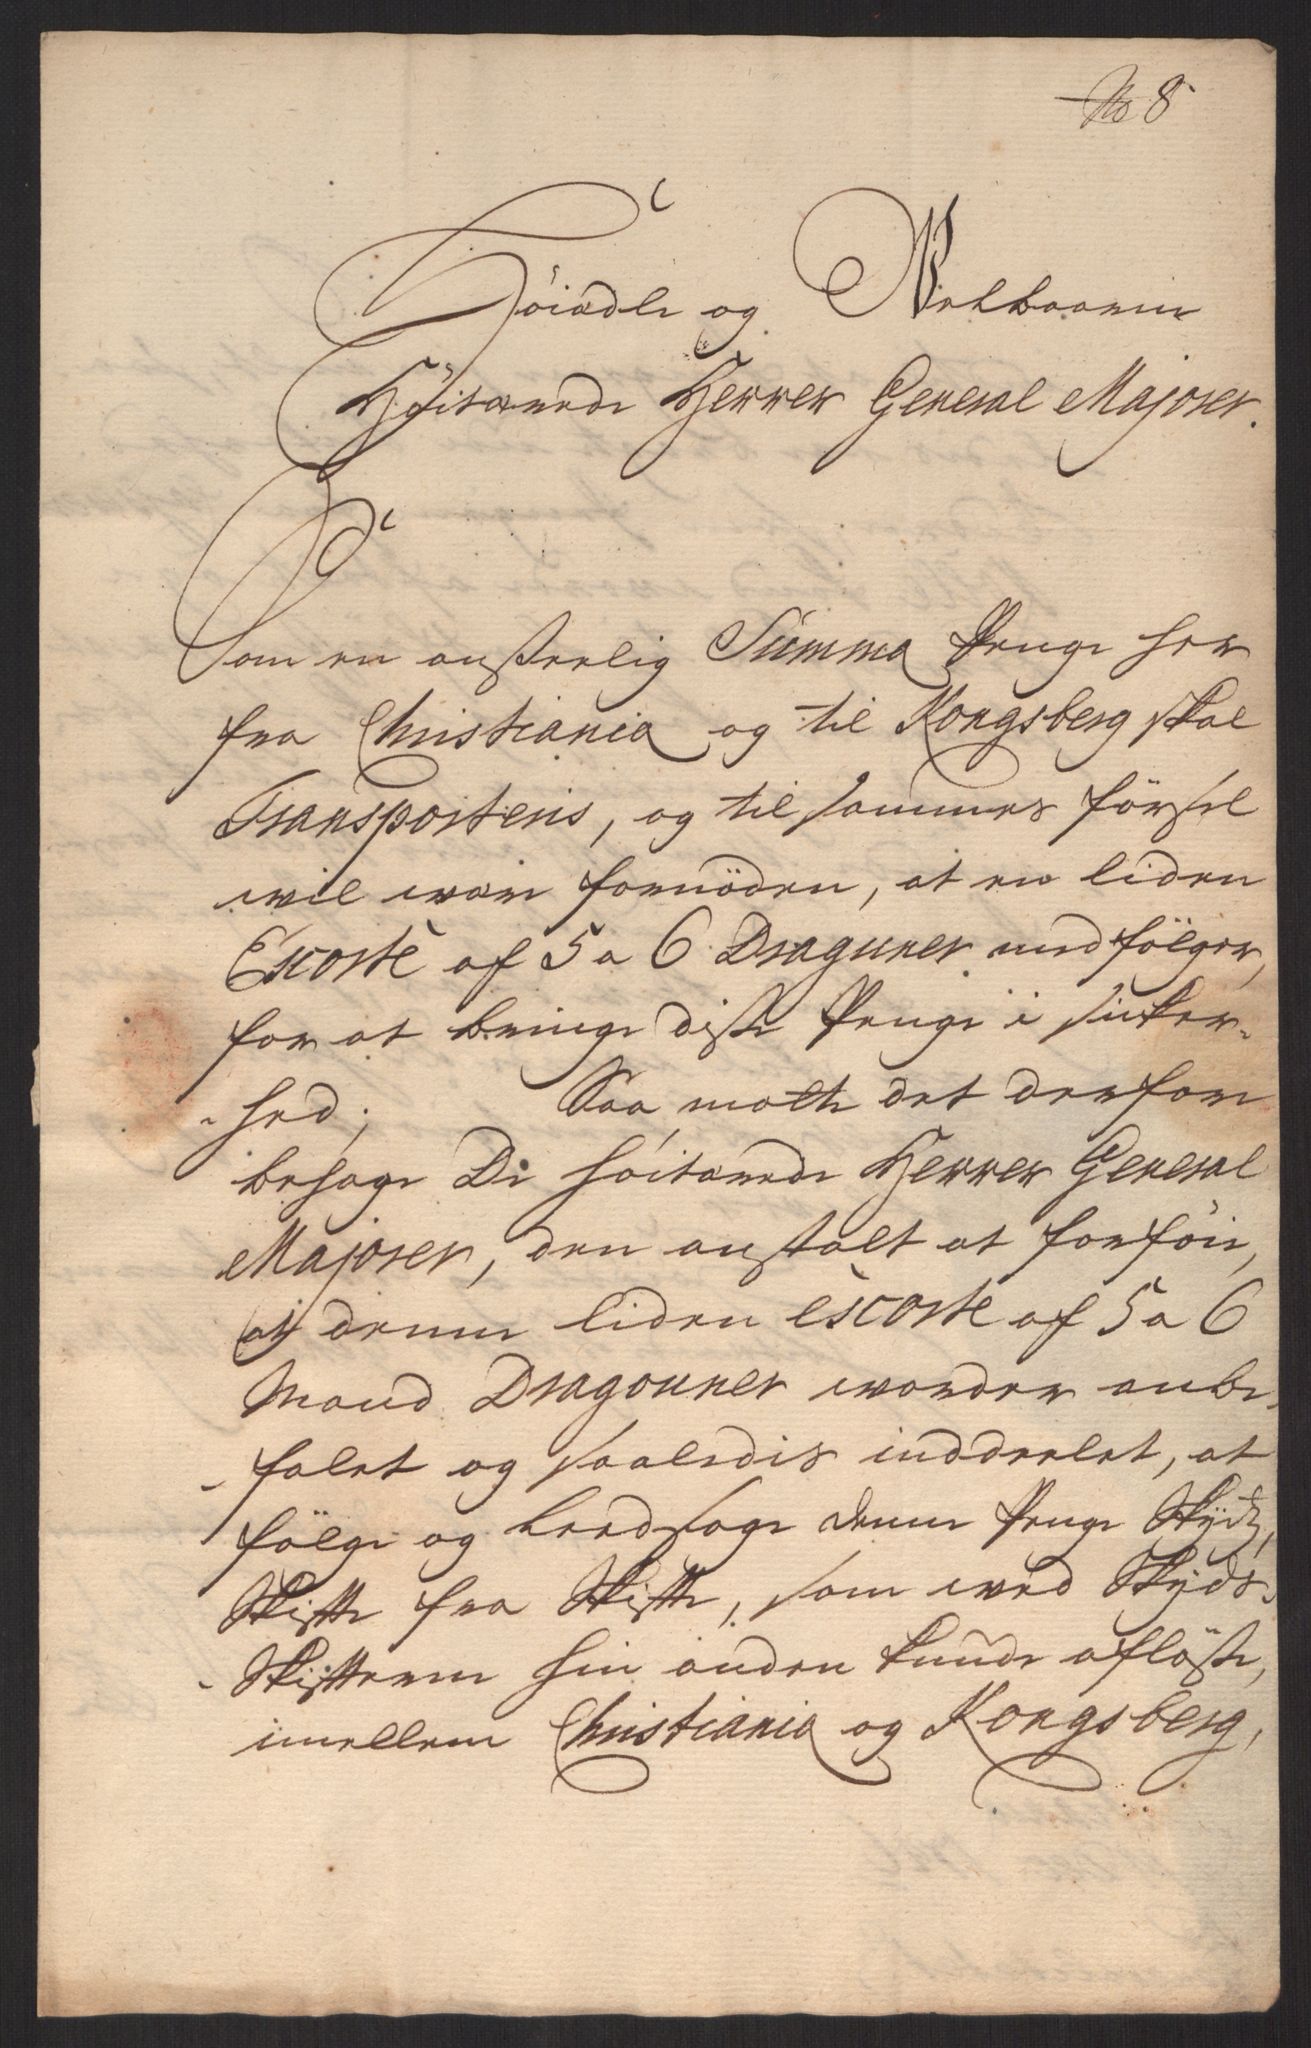 No 8
Höiædle og Welbaarne
Höitærede Herrer General Majorer.
Som en anseelig Summa Penge her
fra Christiania og til Kongsberg skal
Transporteris, og til sammes förSel
wil være fornöden, at en liden
Escorte af 5 a 6 Draguner medfölger,
for at bringe disse Penge i sicker-
-hed; Saa matte det derfore
behage De höitærede Herrer General
Majorer, den anstalt at forföie,
at denne liden Escorte af 5 a 6
Mand Dragouner worder anbe-
-falet og saaledis inddeelet, at
fölge og ledsage denne Penge Skydtz,
Skifte fra Skifte, som wed Skyds-
-Skifterne hin anden kunde aflöse,
imellem Christiania og Kongsberg,